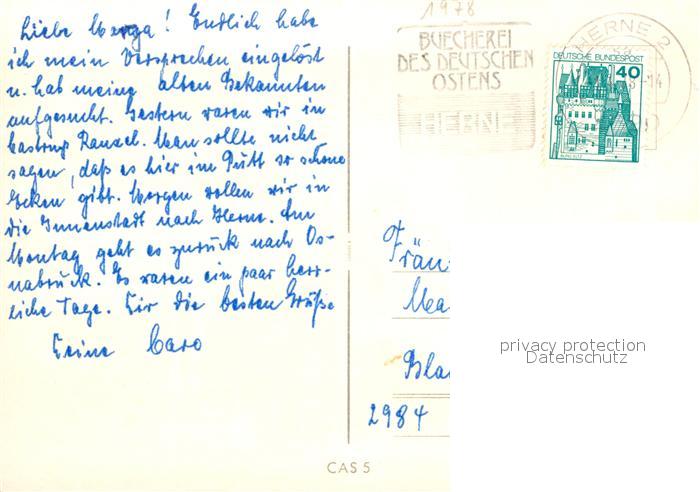 Liebe Menga! Endlich habe
ich mein Versprechen eingelöst
u. hab meine alten Bekannten
aufgesucht. Gestern waren wir in
Castrop Rauxel. Man sollte nicht
sagen, daß es hier im Pütt so schöne
Ecken gibt. Morgen wollen wir in
die Innenstadt nach Herne. Am
Montag geht es zurück nach Os-
nabrück. Es waren ein paar herr-
liche Tage. Dir die besten Grüße
Deine Caro
1978
BUECHEREI
DES DEUTSCHEN
OSTENS
HERNE
HERNE 2
DEUTSCHE BUNDESPOST
40
BURG ELTZ
Fräu
Ma
Bla
2984
privacy protection
Datenschutz
CAS 5